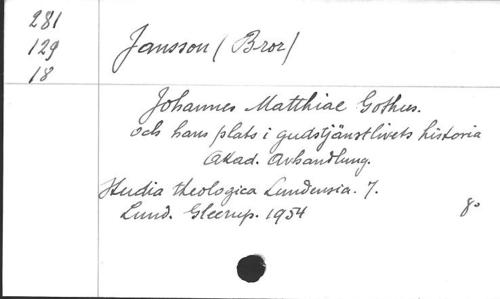 281
129
18
Jansson (Bror)
Johannes Matthiae Gothus.
och hans plats i gudstjänstlivets historia
Akad. Avhandlung.
Studia theologica Lundensia. 7.
Lund. Gleerup. 1954 8o